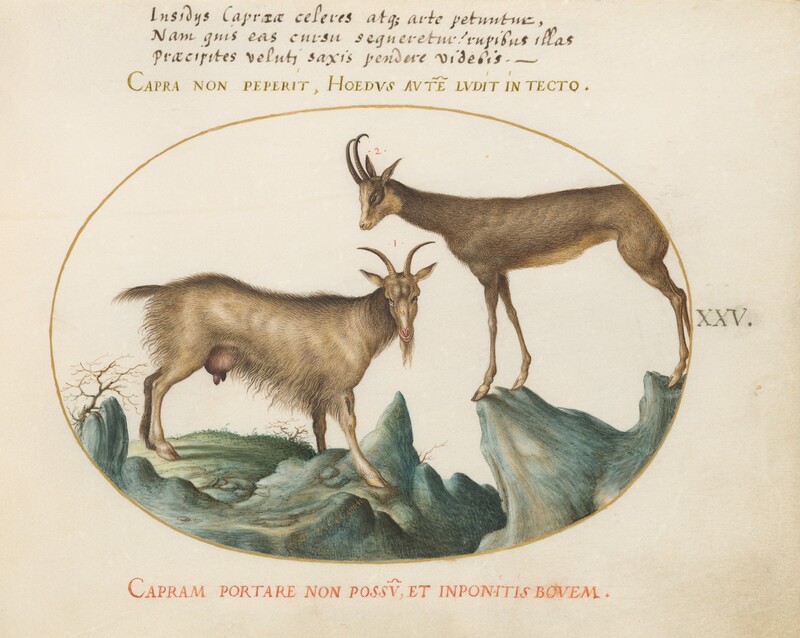 Insidijs Capreæ celeres atq; arte petuntur,
Nam quis eas cursu sequeretur? rupibus illas
Præcipites veluti saxis pendere videbis.
CAPRA NON PEPERIT, HOEDVS AVTE͠ LVDIT IN TECTO.
2
1
XXV.
CAPRAM PORTARE NON POSSV͠, ET INPONITIS BOVEM.